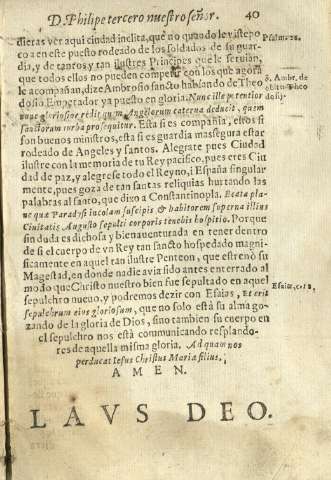 D. Philipe tercero nuestro señor. 40
dieras ver aqui ciudad inclita, que no quando le vistepo
co a en este puesto rodeado de los soldados de su guar
dia, y de tantos y tan ilustres Principes que le seruian,
que todos ellos no pueden competir con los que agora
le acompañan, dize Ambrosio sancto hablando de Theo
dosio Emperador ya puesto en gloria. Nunc ille potentior
nunc gloriosior redit, quem Angelorum caterna deducit, quem
sanctorum turba prosequitur. Esta si es compañia, ellos si
son buenos ministros, esta si es guardia mas segura estar
rodeado de Angeles y santos. Alegrate pues Ciudad
ilustre con la memoria de tu Rey pacifico, pues eres Ciu
dad de paz, y alegrese todo el Reyno, i España singular
mente, pues goza de tan santas reliquias hurtando las
palabras al santo, que dixo a Constantinopla. Beata pla-
ne qua Paradysi incolam suscipis & habitorem superna illius
Ciuitatis Augusto sepulci corporis tenebis hospitio. Porque
sin duda es dichosa y bienauenturada en tener dentro
de si el cuerpo de vn Rey tan sancto hospedado magni-
ficamente en aquel tan ilustre Penteon, que estrenò su
Magestad, en donde nadie avia sido antes enterrado al
modo que Christo nuestro bien fue sepultado en aquel
sepulchro nueuo, y podremos dezir con Esaias, Et erit
sepulchrum eius gloriosum, que no solo està su alma go-
zando de la gloria de Dios, sino tambien su cuerpo en
el sepulchro nos està comunicando resplando-
res de aquella misma gloria. Ad quam nos
perducat Iesus Christus Mariæ filius.
AMEN.
LAVS DEO.
S. Ambr. de
obitu Theo
Esaiæ, c.